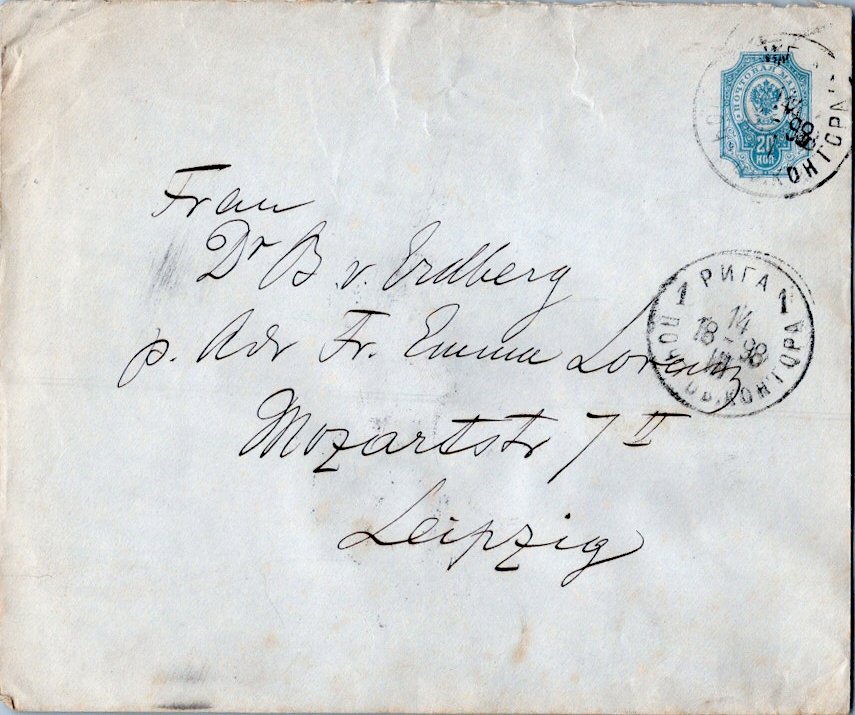 ПОЧТОВАЯ МАРКА
20
КОП
98
КОНТОРА
Frau
Dr B v. Erdberg
p. Adr Fr. Emma Lorenz
Mozartstr 7 II
Leipzig
РИГА
1 1
14
18 - 98
ПОЧТОВ. КОНТОРА